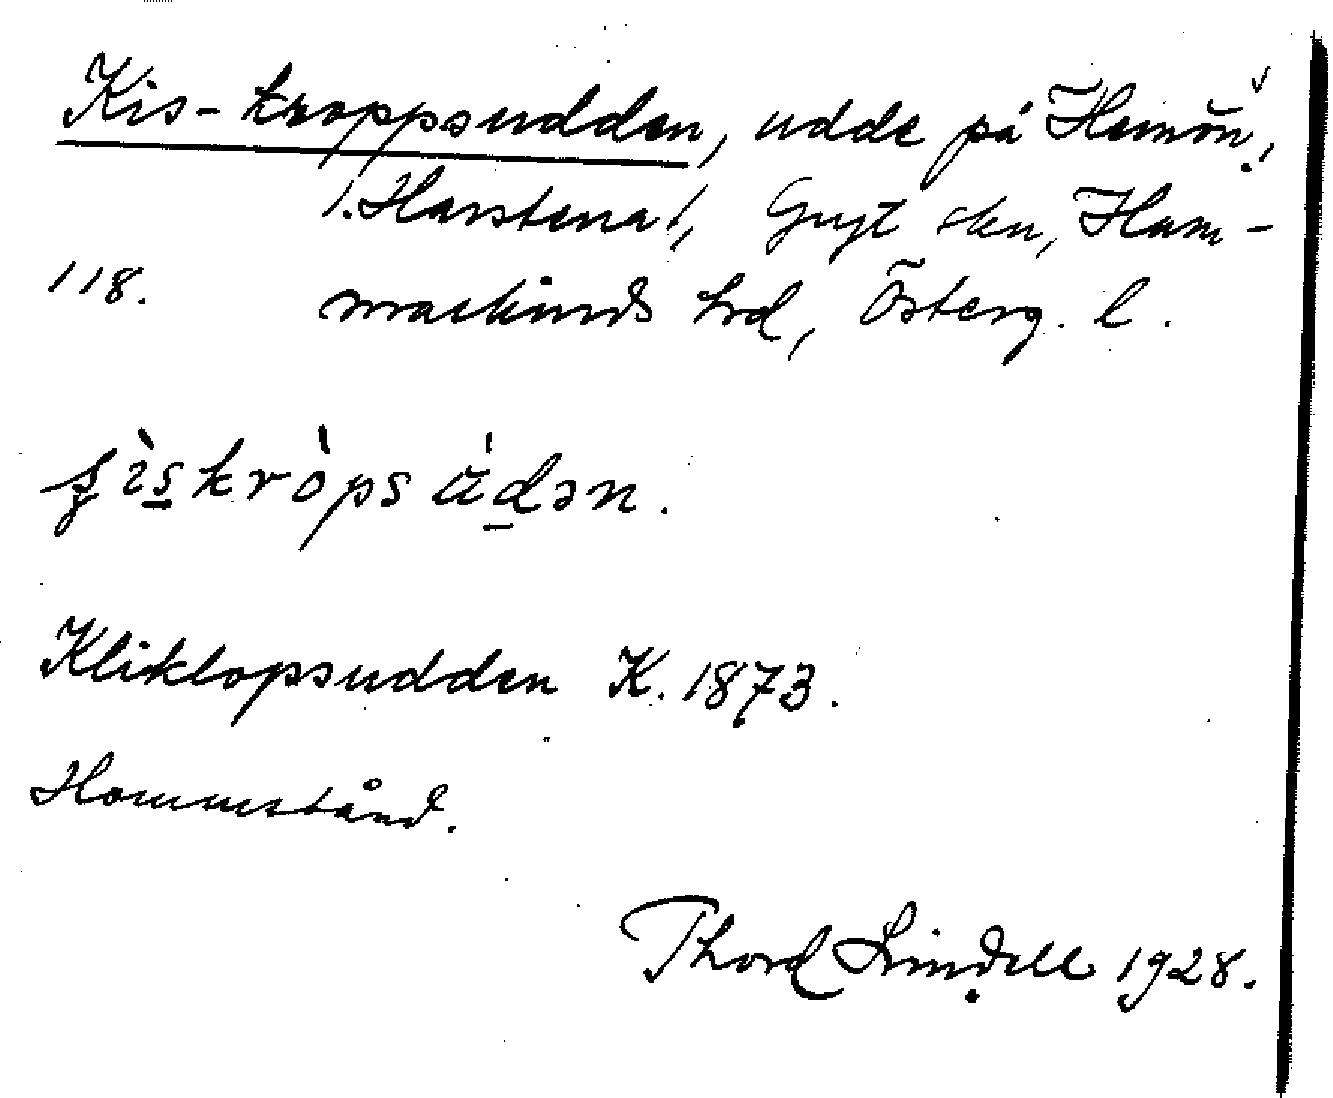 Kis-kroppsudden, udde på Hemön,
/. Harstena /, Gryt skn, Ham-
118. markinds hrd, Österg. l.
Kliklopsudden K. 1873.
Hommstånd.
Thord Lindell 1928.